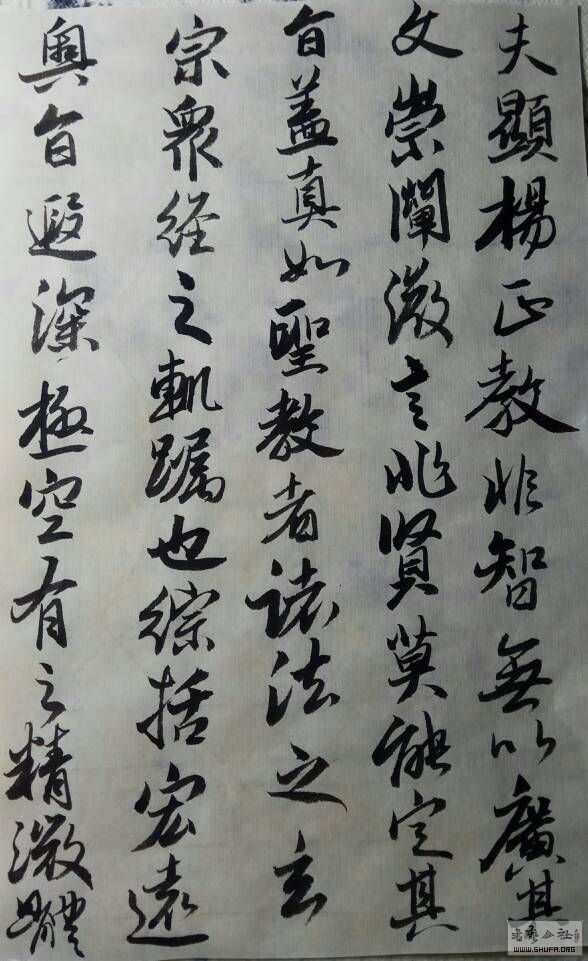 夫顯楊正教非智無以廣其
文崇闡微言非賢莫能定其
旨盖真如聖教者諸法之玄
宗衆经之軌躅也綜括宏遠
奥旨遐深極空有之精微體
WWW.SHUFA.ORG